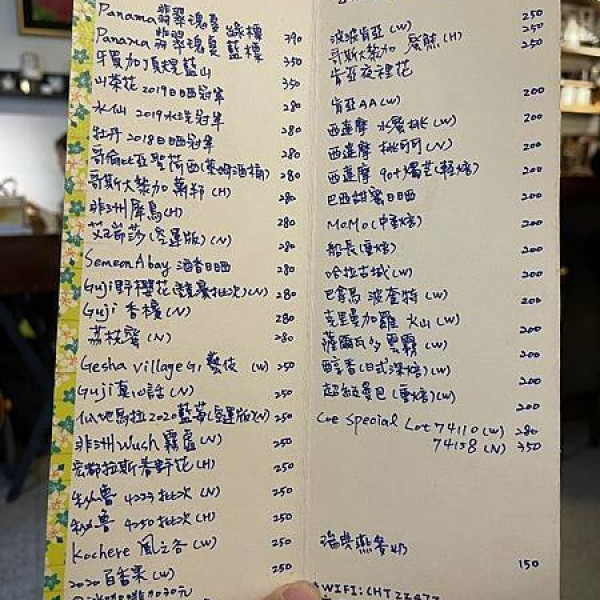 Panama 翡翠瑰夏 綠標
Panama 翡翠瑰夏 藍標 390
牙買加頂規藍山 350
山茶花 2019日晒冠軍 350
水仙 2019水洗冠軍 280
牡丹 2018日晒冠軍 280
哥倫比亞聖荷西(萊姆酒桶) 280
哥斯大黎加 (H) 280
非洲犀鳥(H) 280
艾瑞莎(空運版)(N) 280
Semeon Abay 酒香日晒 280
Guji野櫻花(競賽批次)(N) 280
Guji 香檳(N) 280
荔枝蜜(N) 280
Gesha Village G1 藝伎 (W) 250
Guji真心話(N) 250
瓜地馬拉2020藍莓(空運版)(N) 250
非洲Wush 霧谷(N) 250
宏都拉斯香野花(H) 250
秘魯 4223批次(N) 250
秘魯 4250批次(H) 250
Kochere 風之谷(W) 250
2020 百香果(W) 250
250
波波肯亞(W) 250
哥斯大黎加 (H) 250
肯亞夜裡花
肯亞AA(W) 200
西達摩 水蜜桃(W) 200
西達摩 桃可可(N) 200
西達摩 90+燭芒(輕焙) 200
巴西甜蜜日晒 200
MoMo(中焙) 200
船長(重焙) 200
哈拉古城(W) 200
巴拿馬 波奎特(W) 200
克里曼加羅 火山(W) 200
薩爾瓦多 雲霧(W) 200
醇香(日式深焙)(W) 200
超級曼巴(重焙)(W) 200
Coe Special Lot 74110(W) 280
74158(N) 350
瑞典燕麥奶 150
WIFI: CHT